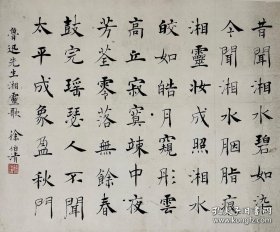 昔聞湘水碧如染
今聞湘水胭脂痕
湘靈妝成照湘水
皎如皓月窺彤雲
高丘寂寞竦中夜
芳荃零落無餘春
鼓完瑤瑟人不聞
太平成象盈秋門
魯迅先生湘靈歌 徐伯清